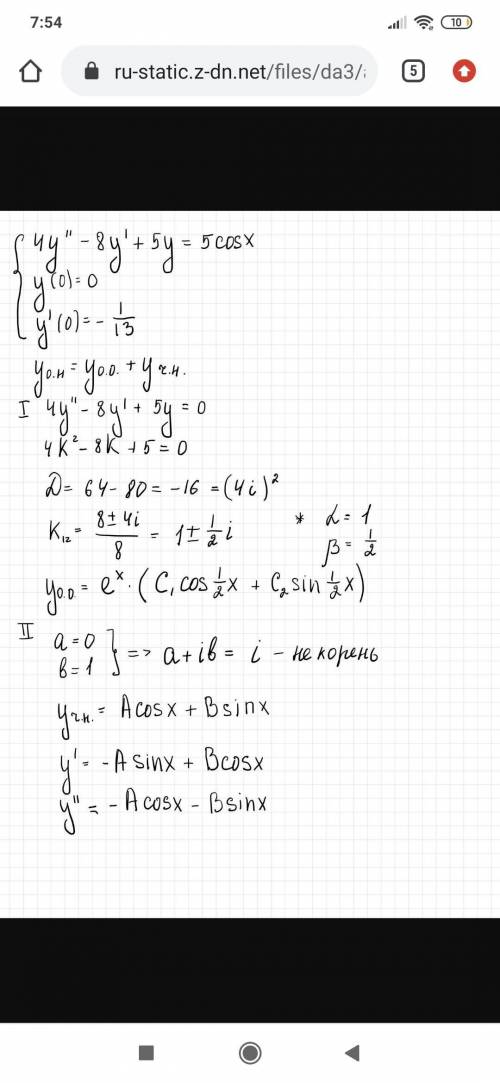 7:54
10
ru-static.z-dn.net/files/da3/
5
4y'' - 8y' + 5y = 5cosx
y(0) = 0
y'(0) = - 1/13
yо.н = yо.о. + yч.н.
I 4y'' - 8y' + 5y = 0
4k² - 8k + 5 = 0
D = 64 - 80 = -16 = (4i)²
K₁₂ = (8 ± 4i)/8 = 1 ± 1/2 i * α = 1
β = 1/2
yо.о. = eˣ · (C₁ cos 1/2 x + C₂ sin 1/2 x)
II a = 0
b = 1 } => a + ib = i - не корень
yч.н. = Acosx + Bsinx
y' = -Asinx + Bcosx
y'' = -Acosx - Bsinx